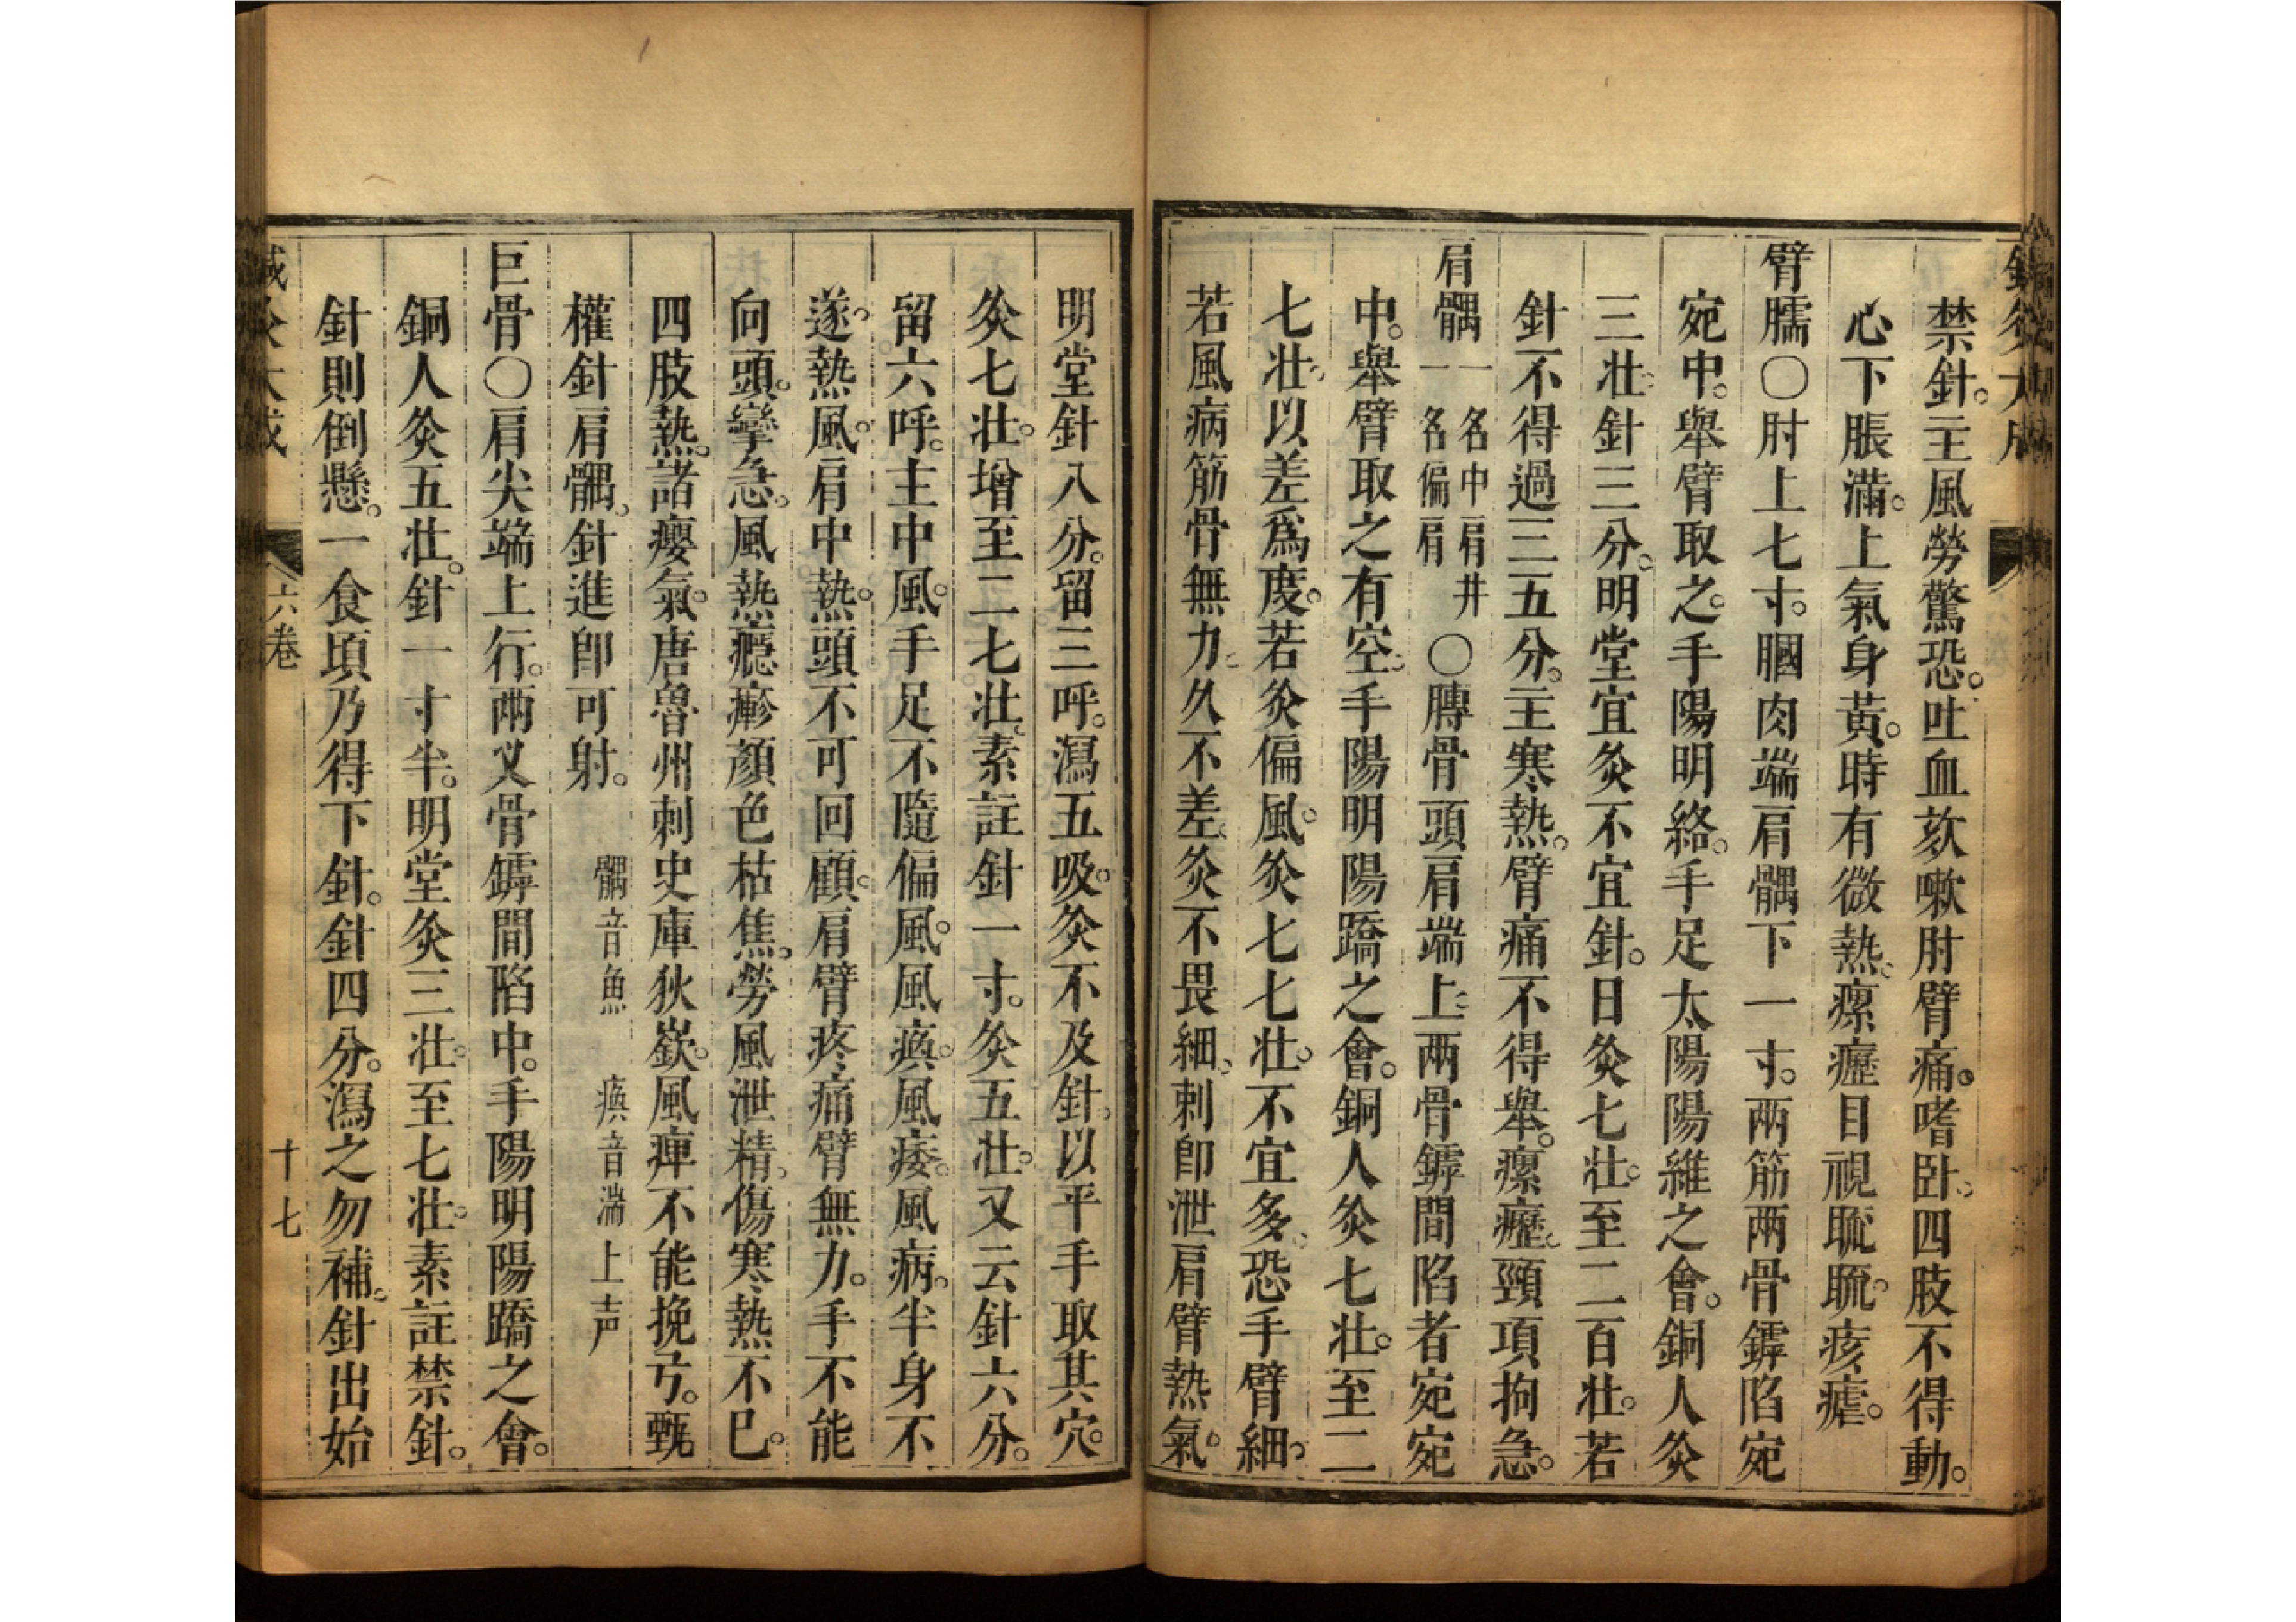 禁針。主風勞驚恐。吐血欬嗽肘臂痛。嗜卧。四肢不得動。
心下脹滿。上氣身黃。時有微熱。瘰癧目視䀮䀮。痎瘧。
臂臑〇肘上七寸。膕肉端肩髃下一寸。兩筋兩骨罅陷宛
宛中。舉臂取之。手陽明絡。手足太陽陽維之會。銅人灸
三壯。針三分。明堂宜灸不宜針。日灸七壯。至二百壯。若
針不得過三五分。主寒熱。臂痛不得舉。瘰癧。頸項拘急。
肩髃 一名中肩井 一名偏肩 〇膊骨頭肩端上。兩骨罅間陷者宛宛
中。舉臂取之有空。手陽明陽蹻之會。銅人灸七壯。至二
七壯。以差爲度。若灸偏風。灸七七壯。不宜多。恐手臂細。
若風病筋骨無力。久不差。灸不畏細。刺卽泄肩臂熱氣。
明堂針八分。留三呼。瀉五吸。灸不及針。以平手取其穴。
灸七壯。增至二七壯。素註針一寸。灸五壯。又云針六分。
留六呼。主中風。手足不隨偏風。風瘓。風痿。風病。半身不
遂。熱風。肩中熱。頭不可回顧。肩臂疼痛臂無力。手不能
向頭。攣急。風熱癮瘮顏色枯焦。勞風泄精。傷寒熱不已。
四肢熱。諸癭氣。唐魯州刺史庫狄嶔。風痺不能挽弓。甄
權針肩髃。針進卽可射。 髃音魚 瘓音湍上声
巨骨〇肩尖端上行。兩叉骨罅間陷中。手陽明陽蹻之會。
銅人灸五壯。針一寸半。明堂灸三壯。至七壯。素註禁針。
針則倒懸。一食頃乃得下針。針四分。瀉之勿補。針出始
六卷
十七